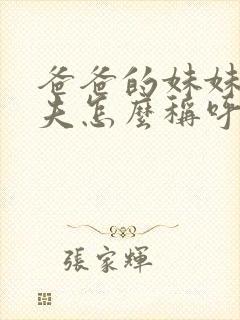 爸爸的妹妹
夫怎麼稱呼
張家輝